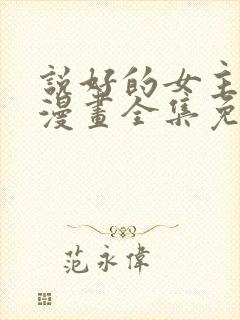 說好的女主
漫畫全集免
范永偉